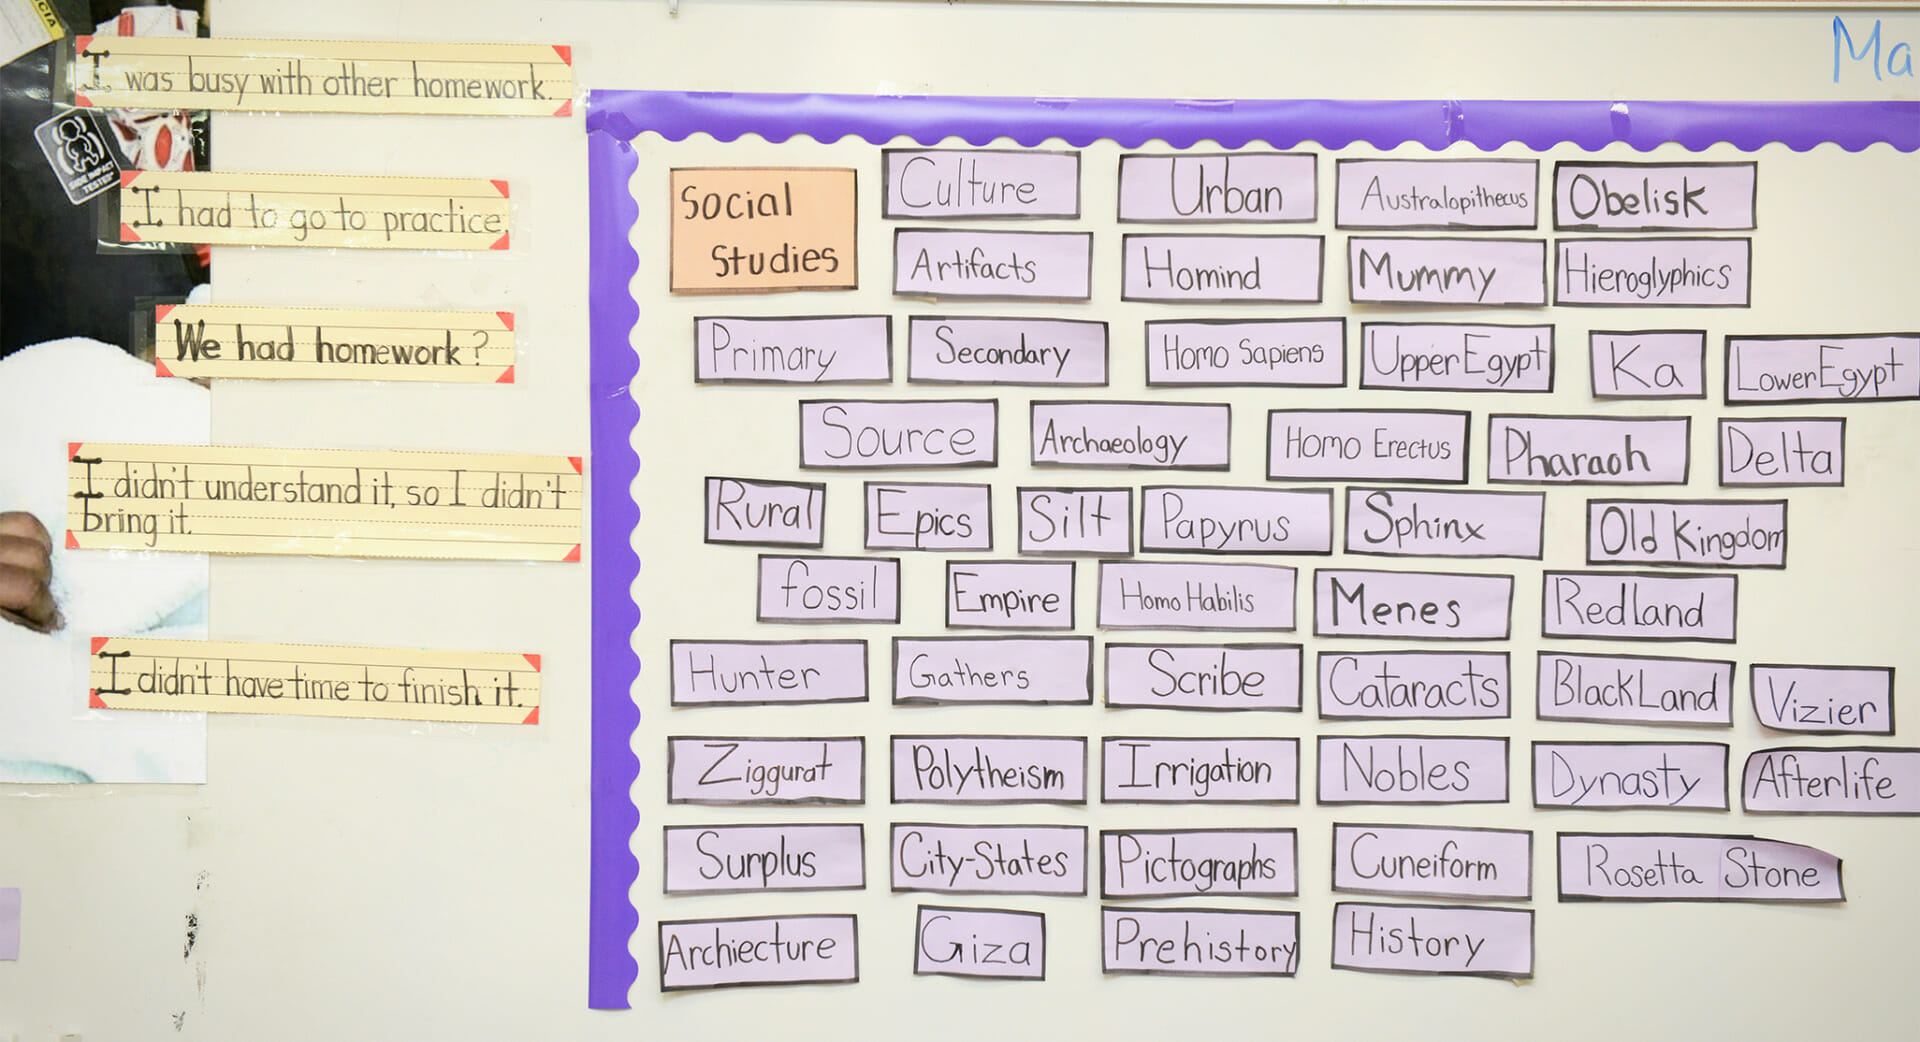 CIA
I was busy with other homework.
SIDE IMPACT
TESTED
I had to go to practice.
We had homework?
I didn't understand it, so I didn't
bring it.
I didn't have time to finish it.
Ma
Social
Studies
Culture
Urban
Australopithecus
Obelisk
Artifacts
Homind
Mummy
Hieroglyphics
Primary
Secondary
Homo Sapiens
Upper Egypt
Ka
Lower Egypt
Source
Archaeology
Homo Erectus
Pharaoh
Delta
Rural
Epics
Silt
Papyrus
Sphinx
Old Kingdom
fossil
Empire
Homo Habilis
Menes
Red Land
Hunter
Gathers
Scribe
Cataracts
Black Land
Vizier
Ziggurat
Polytheism
Irrigation
Nobles
Dynasty
Afterlife
Surplus
City-States
Pictographs
Cuneiform
Rosetta Stone
Archiecture
Giza
Prehistory
History